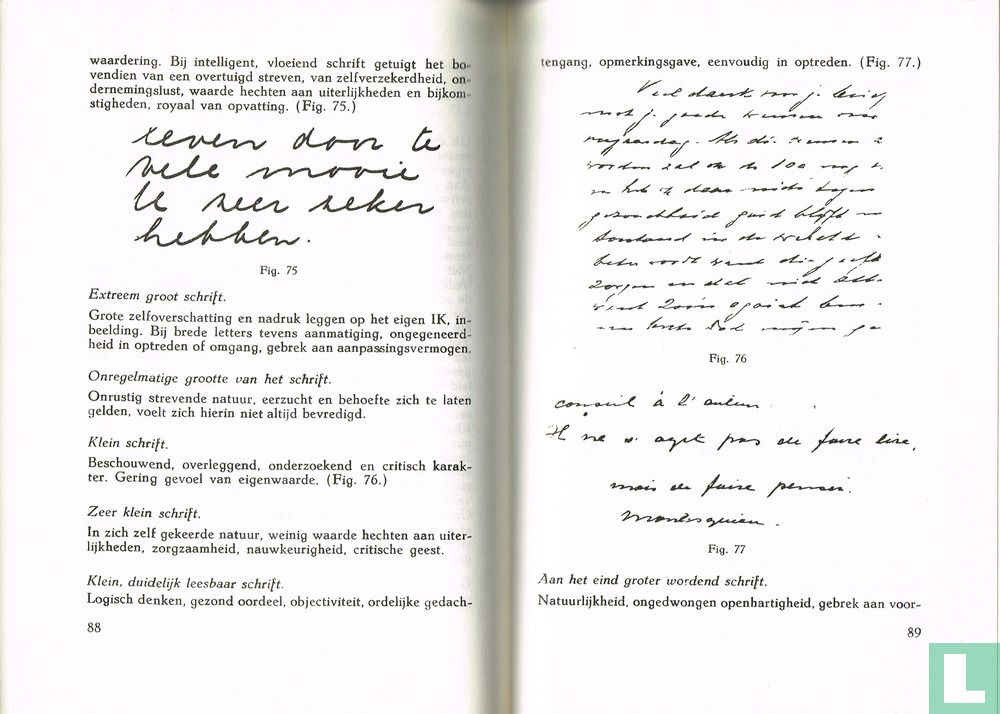 waardering. Bij intelligent, vloeiend schrift getuigt het bo-
vendien van een overtuigd streven, van zelfverzekerdheid, on-
dernemingslust, waarde hechten aan uiterlijkheden en bijkom-
stigheden, royaal van opvatting. (Fig. 75.)
zeven door te
vele mooie
U zeer zeker
hebben.
Fig. 75
Extreem groot schrift.
Grote zelfoverschatting en nadruk leggen op het eigen IK, in-
beelding. Bij brede letters tevens aanmatiging, ongegeneerd-
heid in optreden of omgang, gebrek aan aanpassingsvermogen.
Onregelmatige grootte van het schrift.
Onrustig strevende natuur, eerzucht en behoefte zich te laten
gelden, voelt zich hierin niet altijd bevredigd.
Klein schrift.
Beschouwend, overleggend, onderzoekend en critisch karak-
ter. Gering gevoel van eigenwaarde. (Fig. 76.)
Zeer klein schrift.
In zich zelf gekeerde natuur, weinig waarde hechten aan uiter-
lijkheden, zorgzaamheid, nauwkeurigheid, critische geest.
Klein, duidelijk leesbaar schrift.
Logisch denken, gezond oordeel, objectiviteit, ordelijke gedach-
88
tengang, opmerkingsgave, eenvoudig in optreden. (Fig. 77.)
Veel dank voor je brief
met je goede wensen voor
verjaardag. Als die wensen
worden zal ik de 100 nog
en heb ik daar niets tegen
gezondheid goed blijft en
toestand in de wereld
beter wordt want die geeft
zorgen en dat niet
want
Fig. 76
conseil à l'auteur
Il ne s'agit pas de faire lire,
mais de faire penser.
Montesquieu.
Fig. 77
Aan het eind groter wordend schrift.
Natuurlijkheid, ongedwongen openhartigheid, gebrek aan voor-
89
L